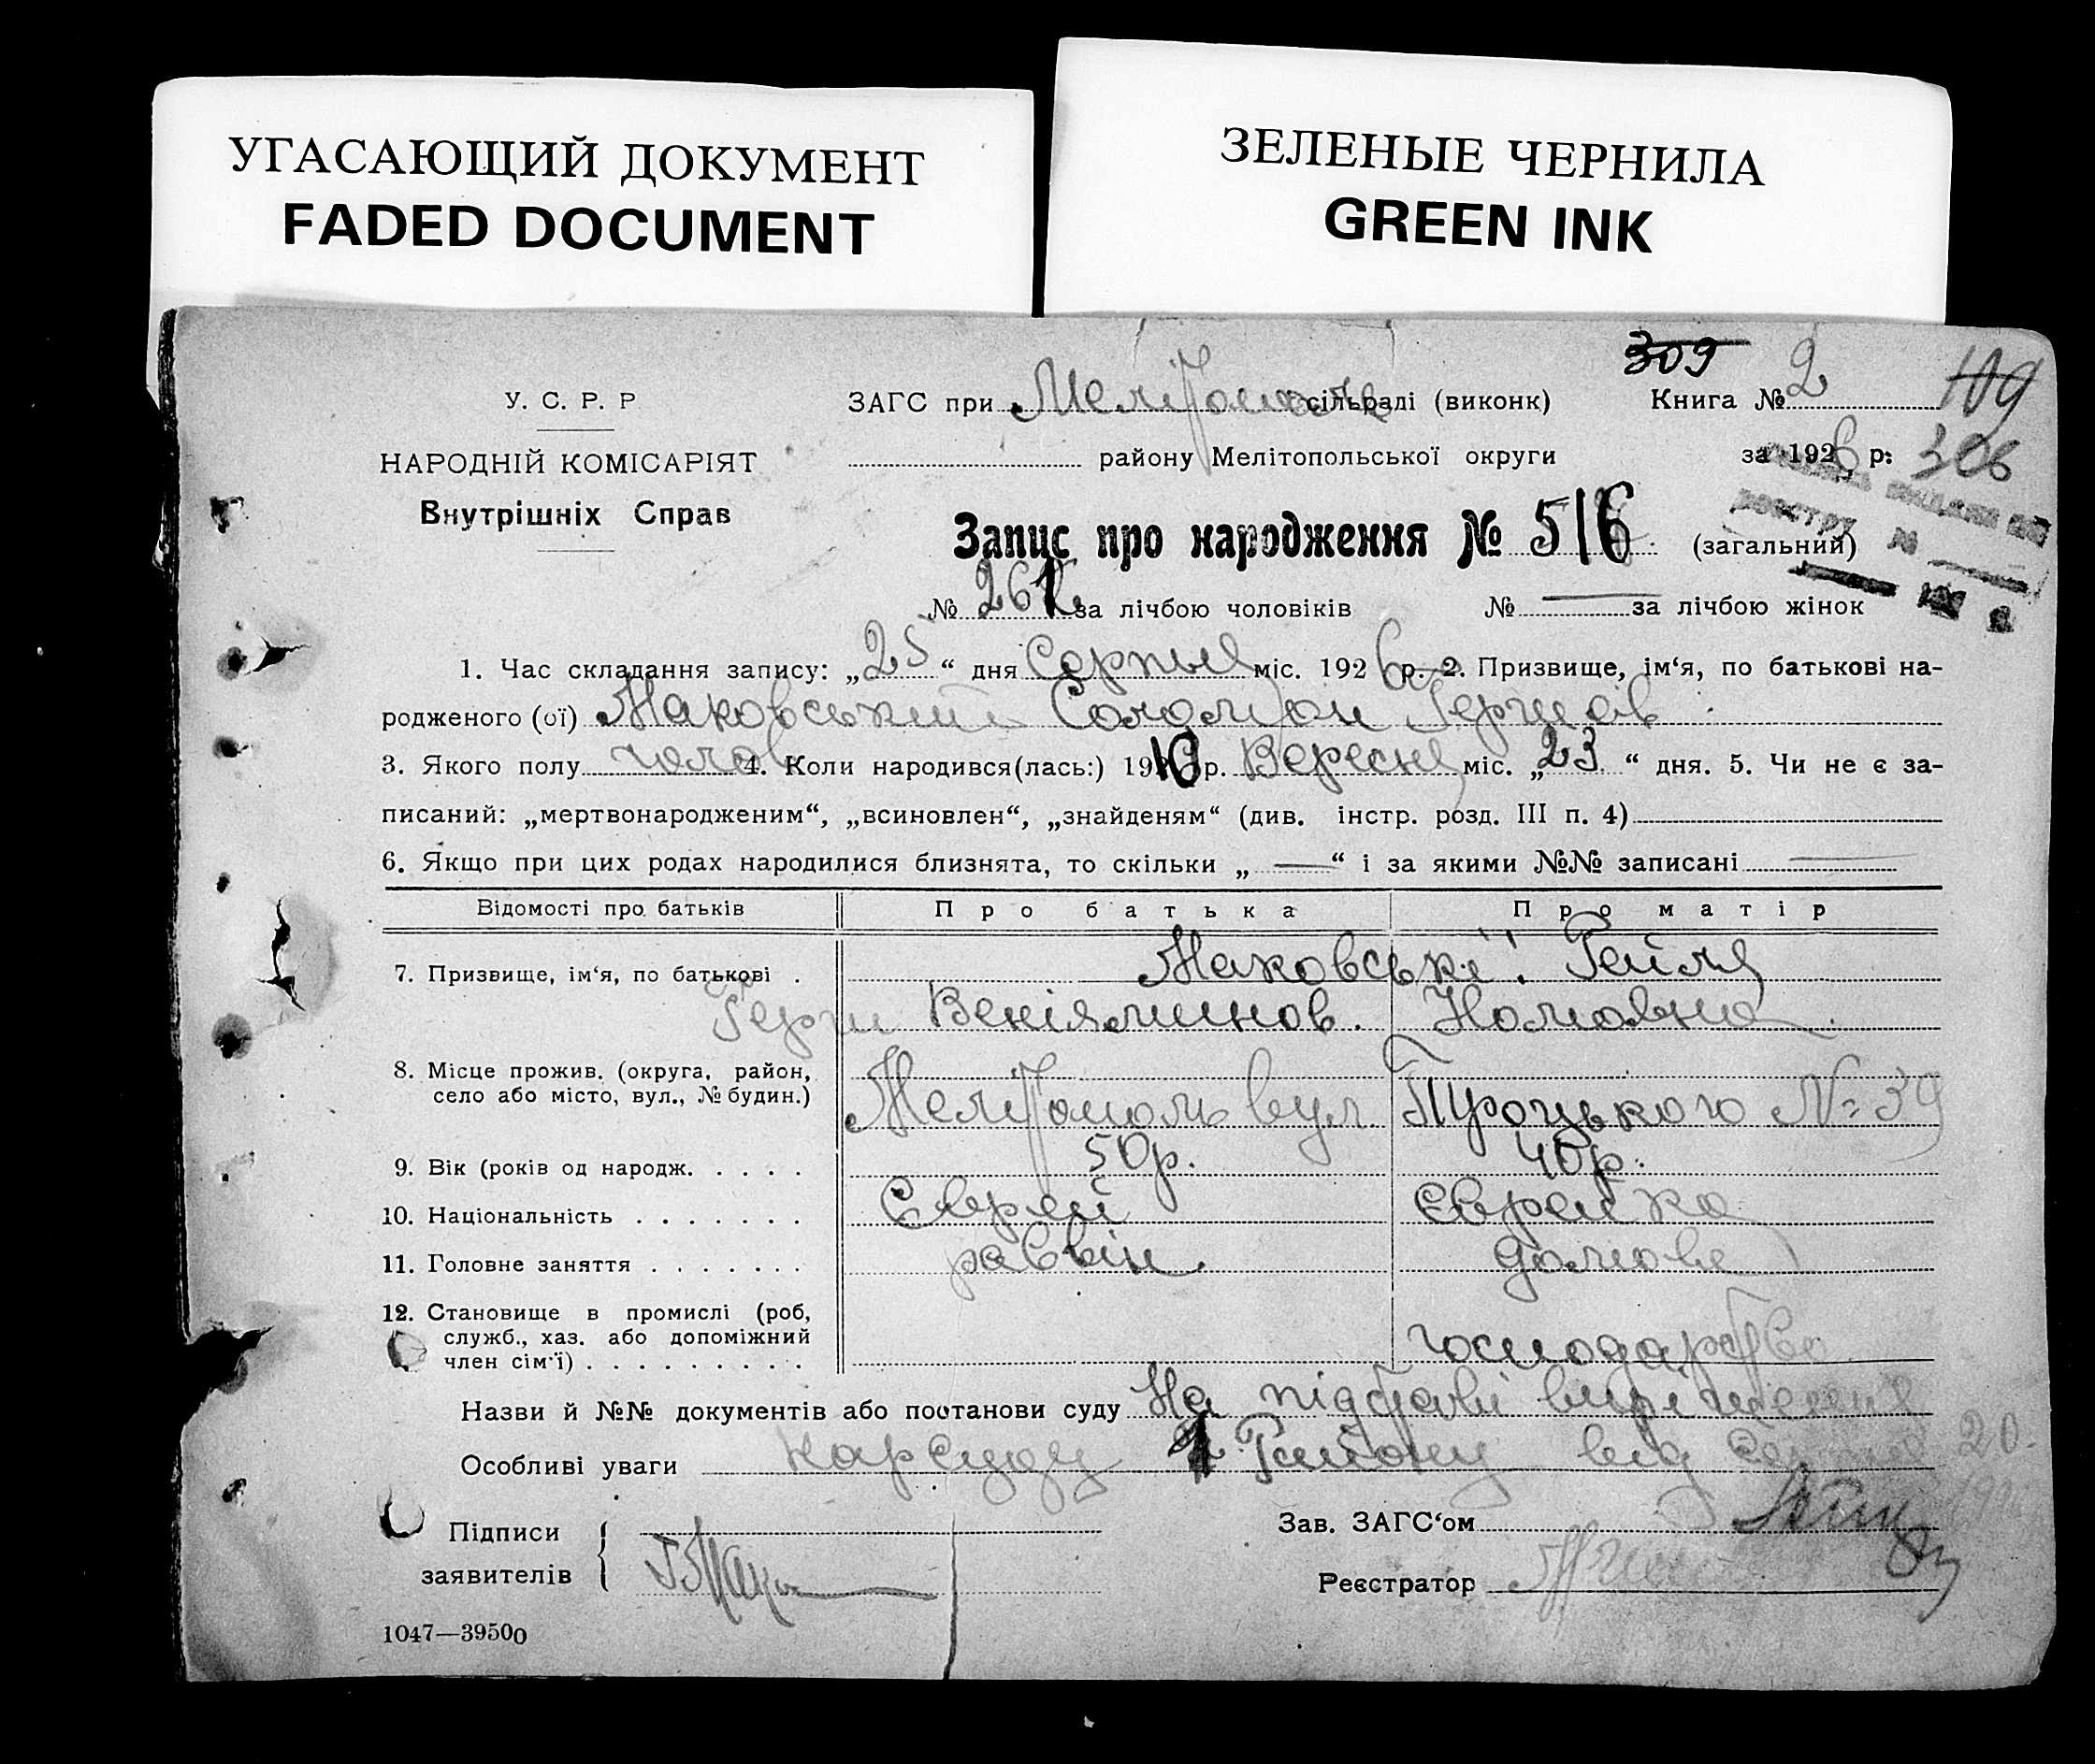 УГАСАЮЩИЙ ДОКУМЕНТ
FADED DOCUMENT
ЗЕЛЕНЫЕ ЧЕРНИЛА
GREEN INK
309
109
306
У. С. Р. Р
НАРОДНІЙ КОМІСАРІЯТ
Внутрішніх Справ
ЗАГС при сільраді (виконк) Книга № 2
району Мелітопольської округи за 1926 р:
Запис про народження № 516 (загальний)
№ 261 за лічбою чоловіків № — за лічбою жінок
1. Час складання запису: „25“ дня Серпня міс. 1926 р. 2. Призвище, ім‘я, по батькові на-
родженого (ої) Маковський Соломон Гершов
3. Якого полу чолов 4. Коли народився(лась:) 1910 р. Вересня міс. „23“ дня. 5. Чи не є за-
писаний: „мертвонародженим“, „всиновлен“, „знайденям“ (див. інстр. розд. III п. 4)
6. Якщо при цих родах народилися близнята, то скільки „—“ і за якими №№ записані —
Відомості про батьків Про батька Про матір
7. Призвище, ім‘я, по батькові . Маковські: Гейля
Герш Веніяминов. Номовна
8. Місце прожив. (округа, район,
село або місто, вул., № будин.) Мелітополь вул. Троцького № 39
9. Вік (років од народж. . . . . 50р. 40р.
10. Національність . . . . . . . Єврей Єврейка
11. Головне заняття . . . . . . . раввін. домове
12. Становище в промислі (роб,
служб., хаз. або допоміжний
член сім‘ї) . . . . . . . . . господарство
Назви й №№ документів або постанови суду На підставі вирішення
Особливі уваги нарсуду 1 Району від Серпня 20.
Підписи
заявителів
Зав. ЗАГС‘ом
Реєстратор
1047—39500